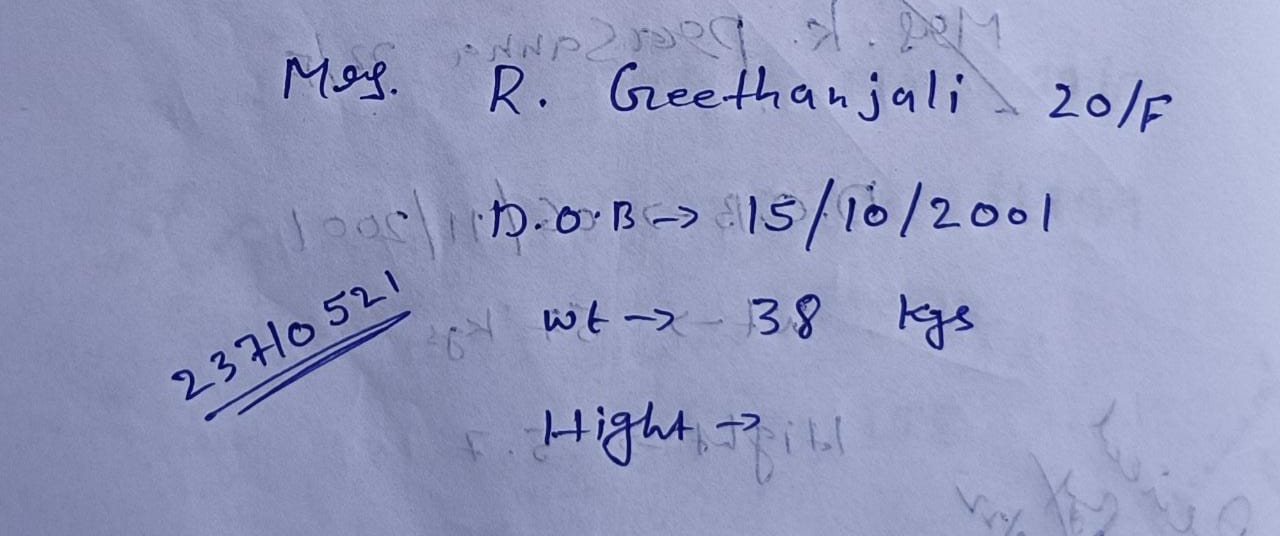 Mrs. R. Geethanjali 20/F
D.O.B → 15/10/2001
23710521
wt → 38 kgs
Hight →